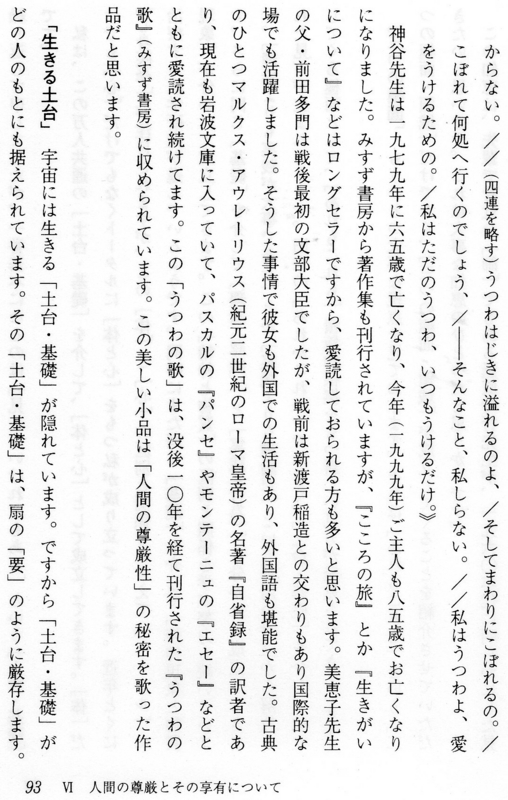 からない。／／（四連を略す）うつわはじきに溢れるのよ、／そしてまわりにこぼれるの。／
こぼれて何処へ行くのでしょう、／――そんなこと、私しらない。／／私はうつわよ、愛
をうけるための。／私はただのうつわ、いつもうけるだけ。》
神谷先生は一九七九年に六五歳で亡くなり、今年（一九九九年）ご主人も八五歳でお亡くなり
になりました。みすず書房から著作集も刊行されていますが、『こころの旅』とか『生きがい
について』などはロングセラーですから、愛読しておられる方も多いと思います。美恵子先生
の父・前田多門は戦後最初の文部大臣でしたが、戦前は新渡戸稲造との交わりもあり国際的な
場でも活躍しました。そうした事情で彼女も外国での生活もあり、外国語も堪能でした。古典
のひとつマルクス・アウレーリウス（紀元二世紀のローマ皇帝）の名著『自省録』の訳者であ
り、現在も岩波文庫に入っていて、パスカルの『パンセ』やモンテーニュの『エセー』などと
ともに愛読され続けてます。この「うつわの歌」は、没後一〇年を経て刊行された『うつわの
歌』（みすず書房）に収められています。この美しい小品は「人間の尊厳性」の秘密を歌った作
品だと思います。
「生きる土台」　宇宙には生きる「土台・基礎」が隠れています。ですから「土台・基礎」が
どの人のもとにも据えられています。その「土台・基礎」は、扇の「要」のように厳存します。
93　Ⅵ　人間の尊厳とその享有について